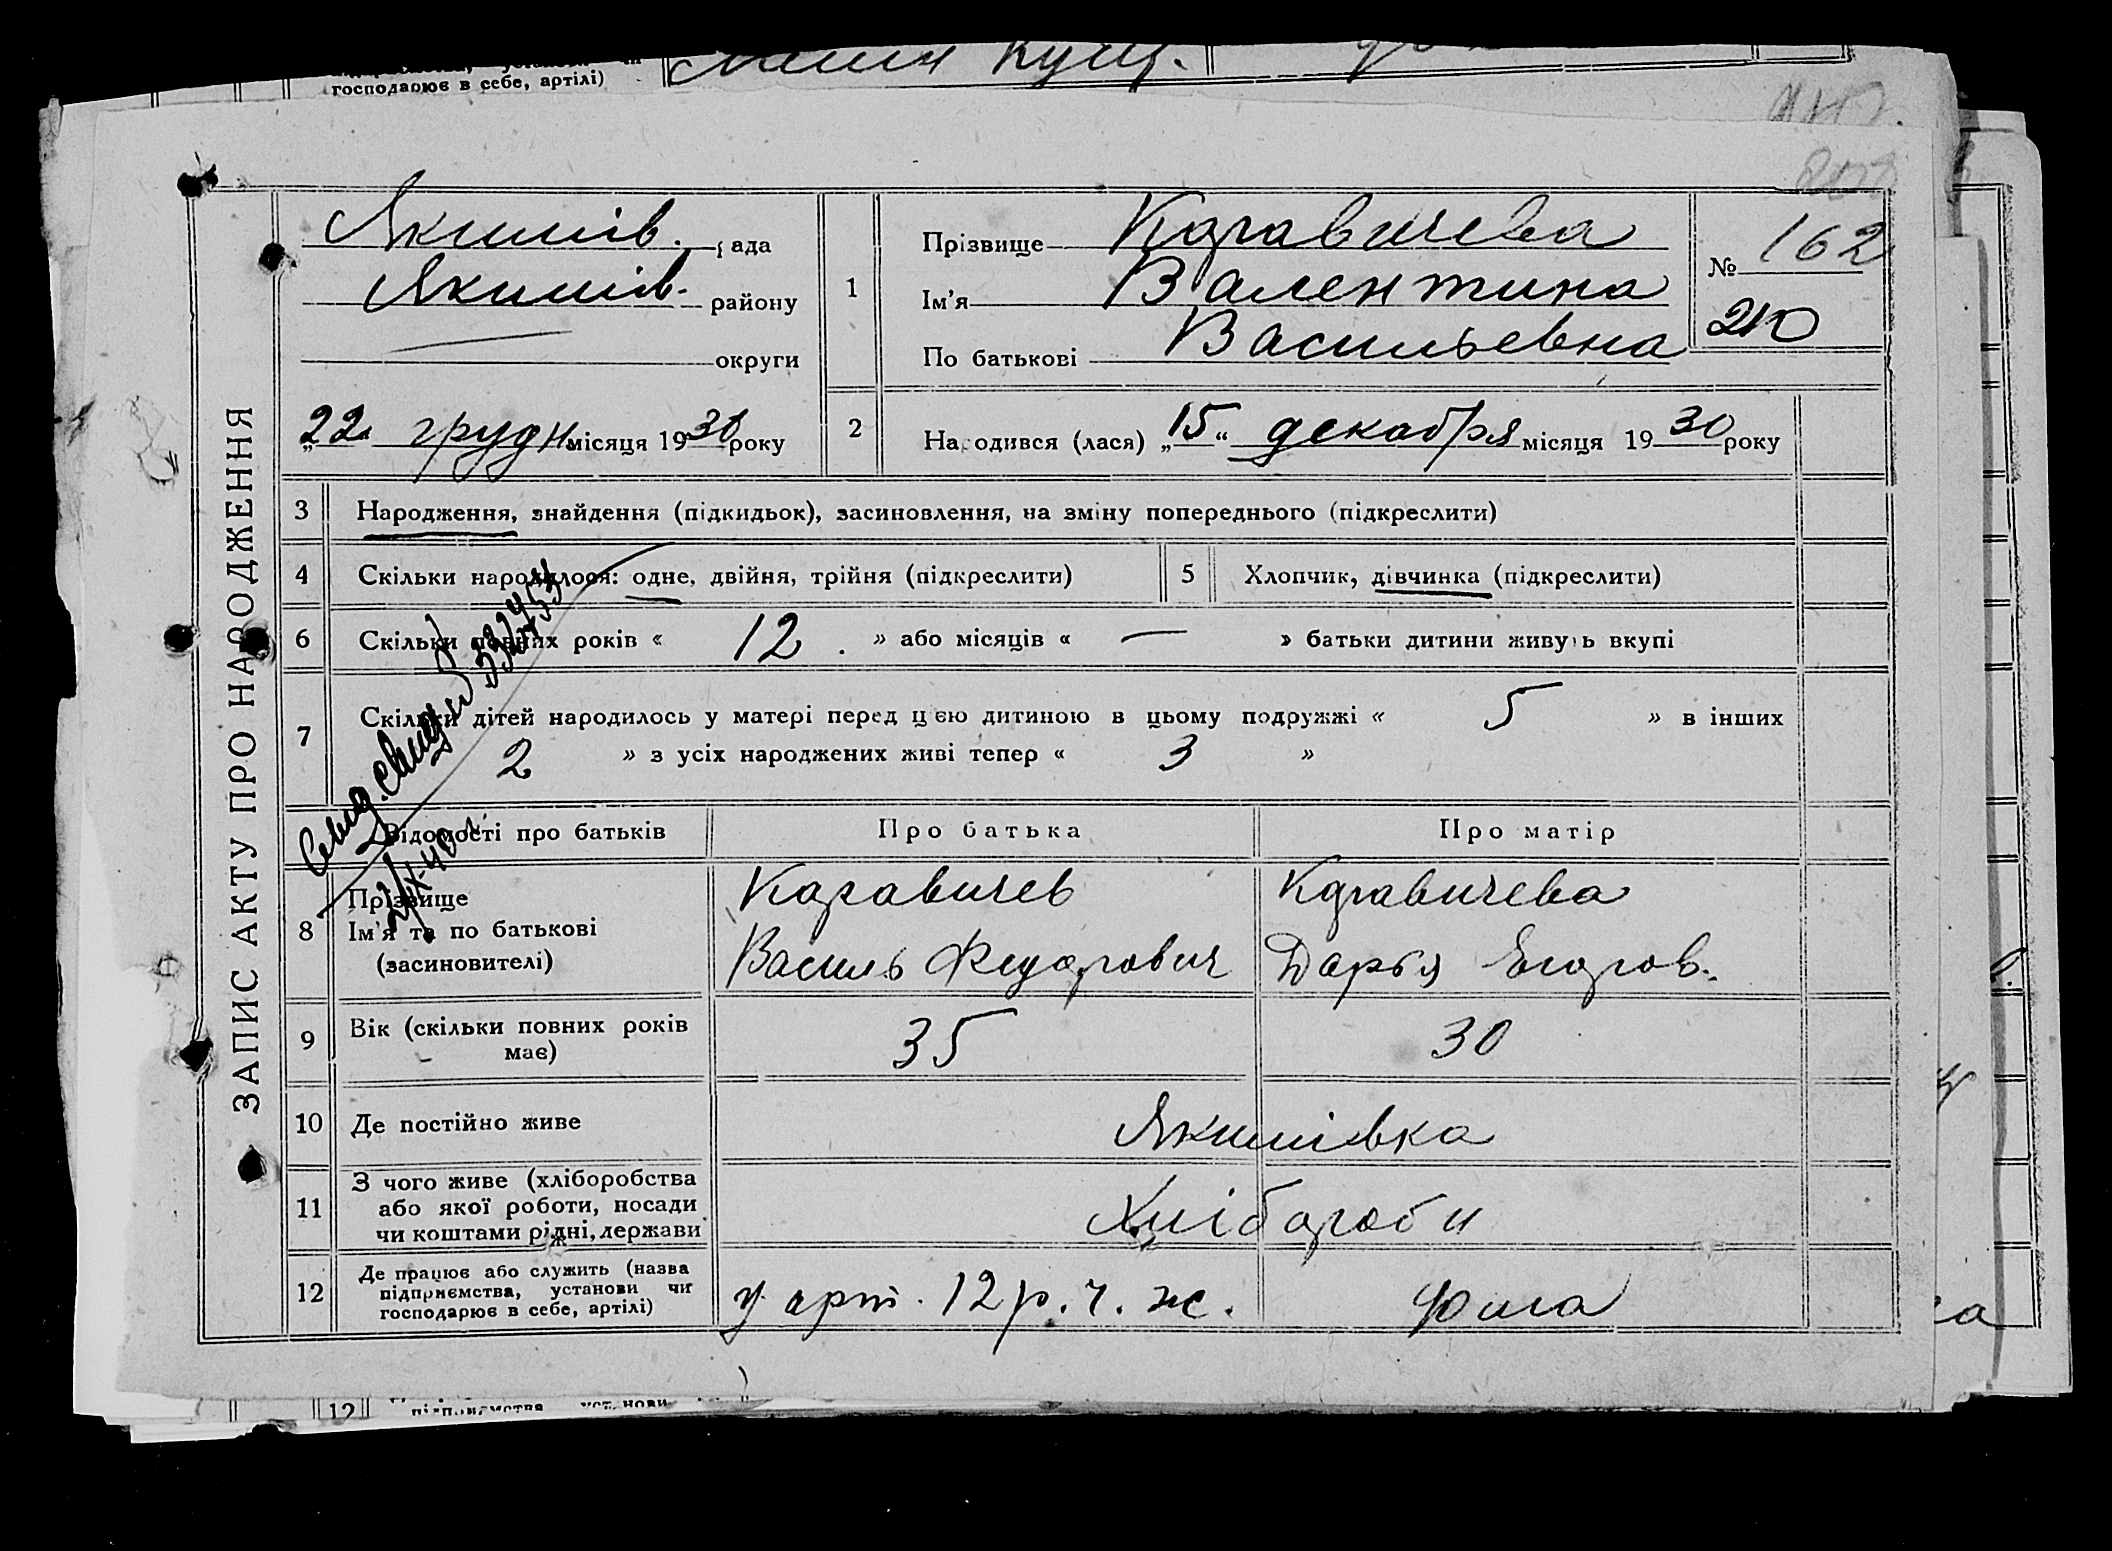 господарює в себе, артілі)
ЗАПИС АКТУ ПРО НАРОДЖЕННЯ
Якимів. рада
Якимів. району
округи
„22“ грудн місяця 1930 року
1
Прізвище Каравичева
Ім'я Валентина
По батькові Васильевна
№ 162
210
2
Народився (лася) „15“ декабря місяця 1930 року
3 Народження, знайдення (підкидьок), засиновлення, на зміну попереднього (підкреслити)
4 Скільки народилося: одне, двійня, трійня (підкреслити)
5 Хлопчик, дівчинка (підкреслити)
6 Скільки повних років « 12 . » або місяців « — » батьки дитини живуть вкупі
7 Скільки дітей народилось у матері перед цією дитиною в цьому подружжі « 5 » в інших
2 » з усіх народжених живі тепер « 3 »
Відомості про батьків
Про батька
Про матір
8 Прізвище
Ім'я та по батькові
(засиновителі)
Каравичев
Василь Федорович
Каравичева
Дарья Егоров.
9 Вік (скільки повних років має)
35
30
10 Де постійно живе
Якимівка
11 З чого живе (хліборобства
або якої роботи, посади
чи коштами рідні, держави
Хлібороби
12 Де працює або служить (назва
підприємства, установи чи
господарює в себе, артілі)
у арт. 12 р. ч. ж.
12